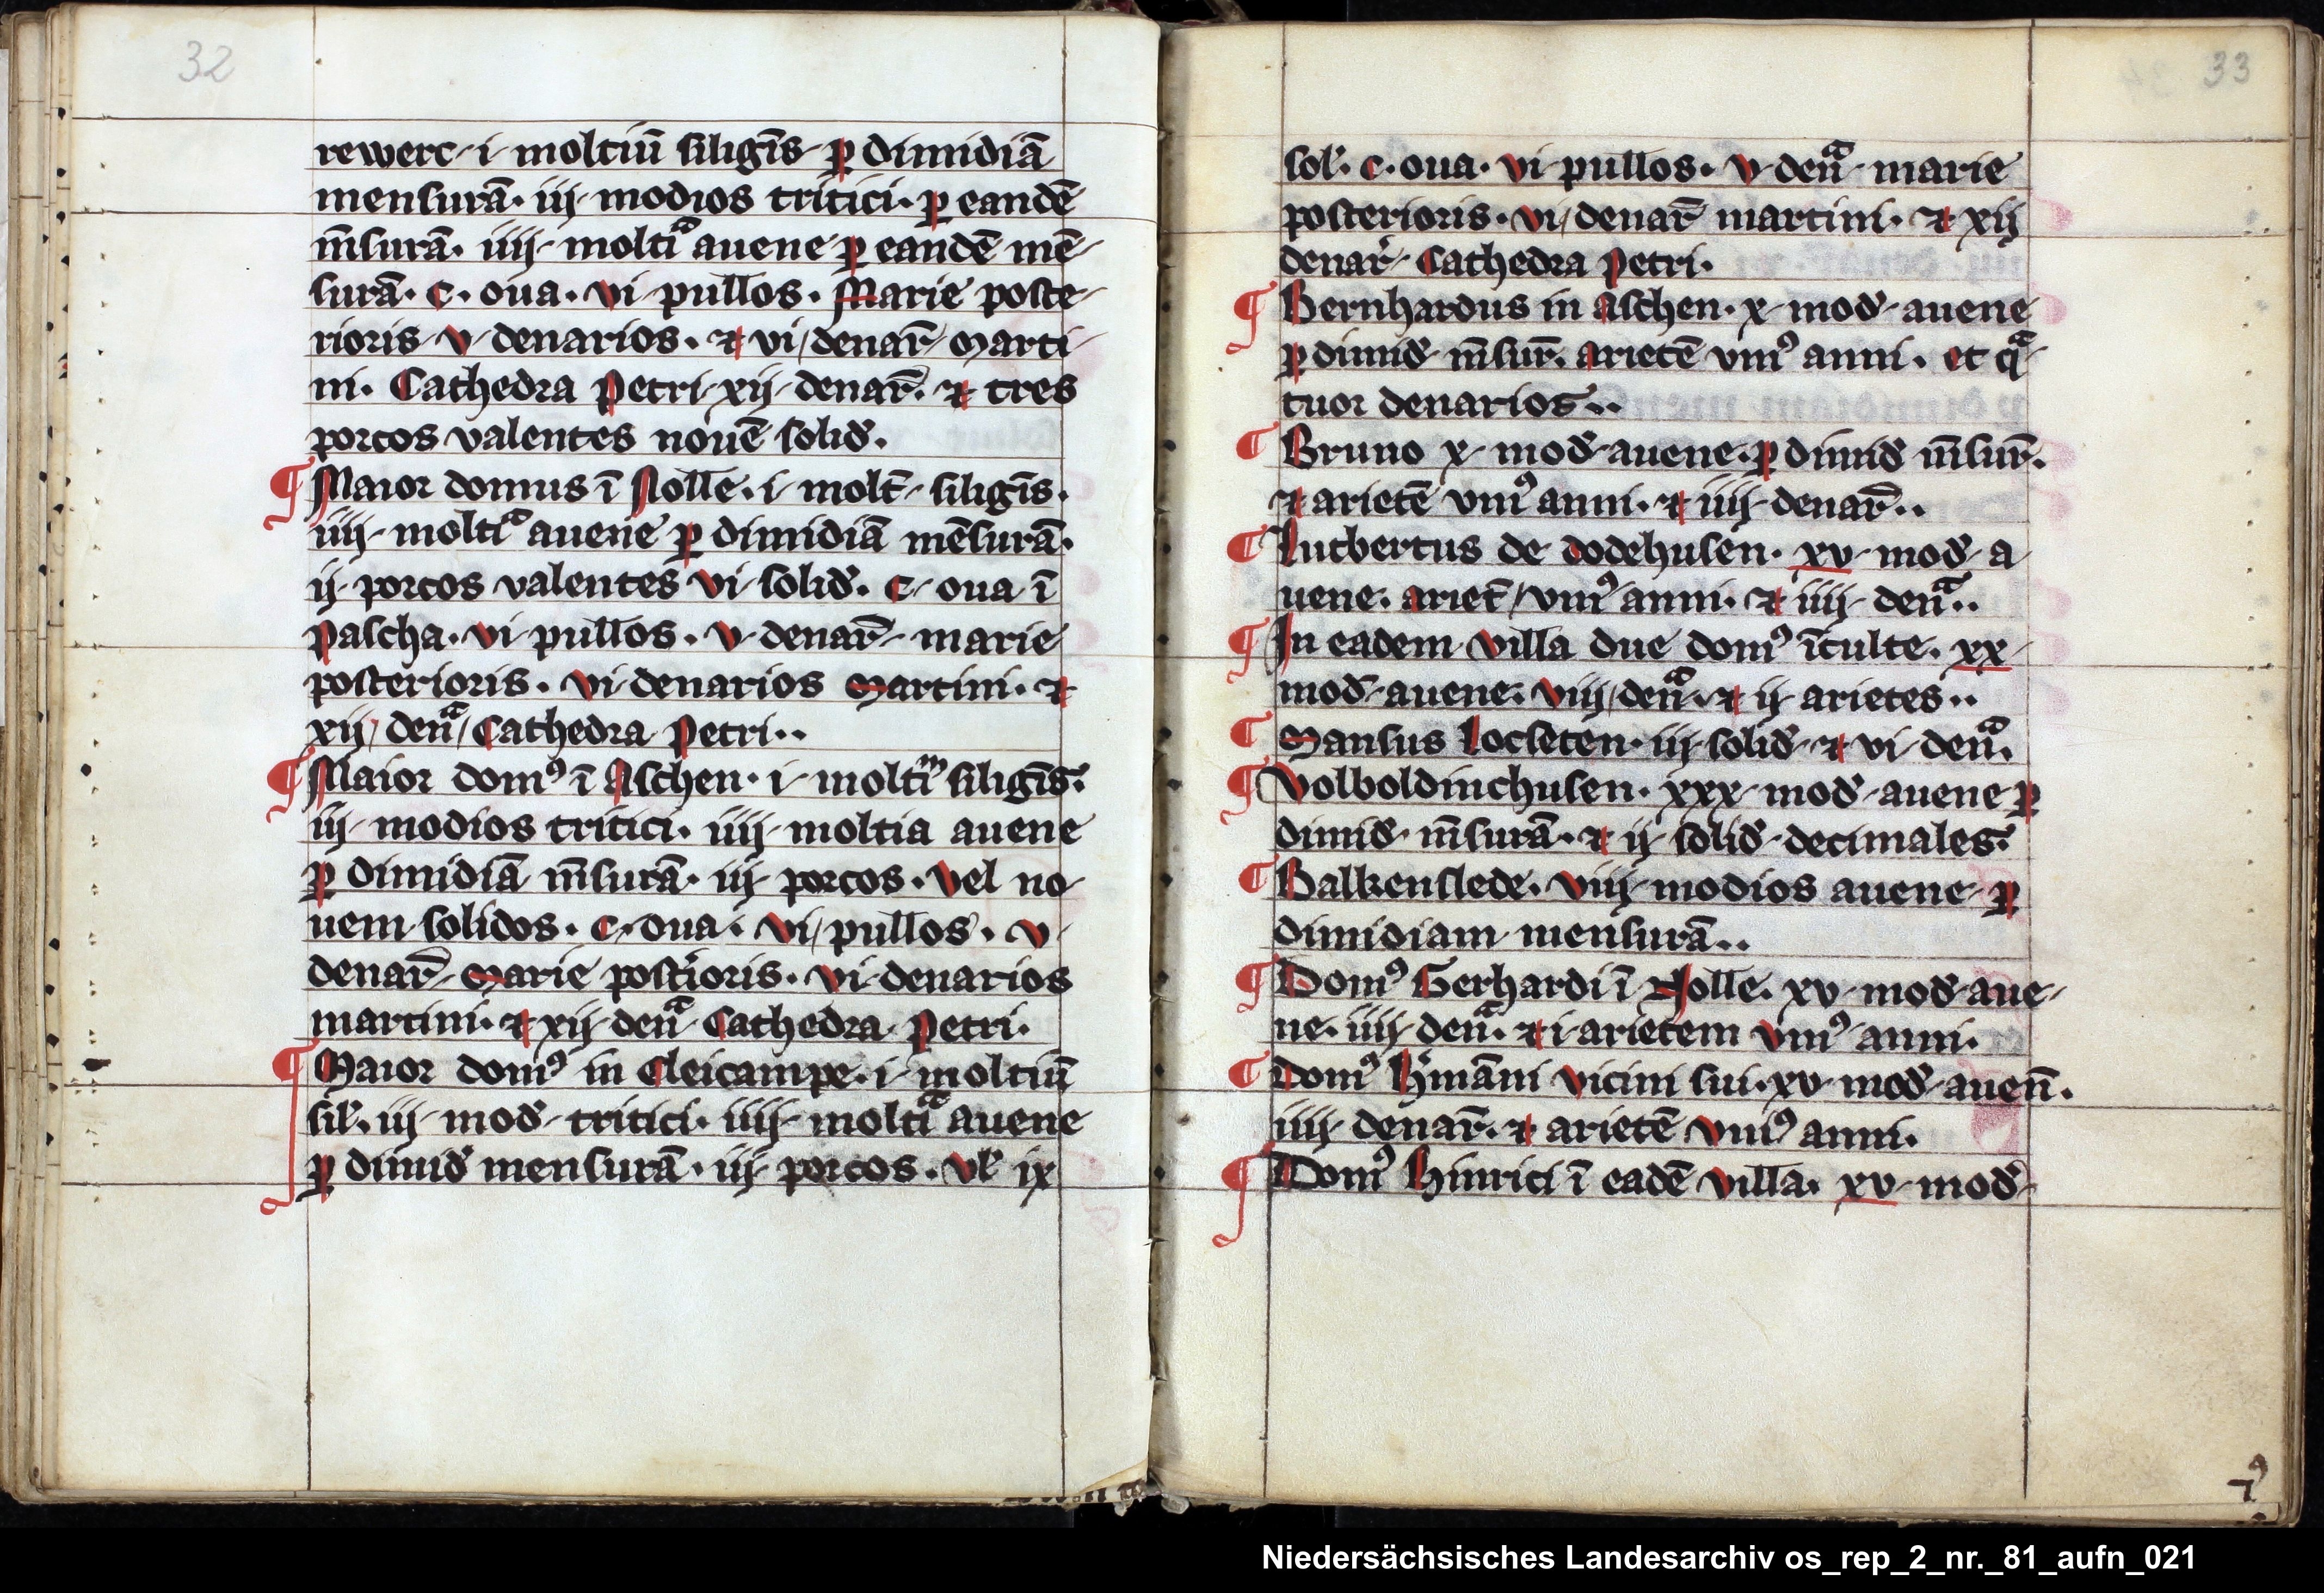 32
rewerc · i · moltiū siligīs · ꝑ dimidiā
mensurā · iij · modios tritici · ꝑ eandē
m̄surā · iiij · moltiᵃ auene ꝑ eandē mē-
surā · c · oua · vi · pullos · Marie poste-
rioris · v · denarios · ⁊ vi / denar̄ · Marti-
ni · Cathedra Petri · xij · denar̄ · ⁊ tres
porcos valentes nouē solid̛ ·
¶ Maior domus ī Nolle · i · molt̄ · siligīs ·
iiij · moltiᵃ auene ꝑ dimidiā mēsurā ·
ij · porcos valentes vi · solid̛ · c · oua ī
Pascha · vi · pullos · v · denar̄ · marie
posterioris · vi · denarios Martini · ⁊
xij / den̄ᵃ / Cathedra Petri ··
¶ Maior domꝰ ī Aschen · i · moltiᵐ siligīs ·
iij · modios tritici · iiij · moltia auene
ꝑ dimidiā m̄surā · iij · porcos · vel no-
uem solidos · c · oua · vi / pullos · v ·
denar̄ · Marie post̛ioris · vi · denarios
martini · ⁊ xij · den̄ᵃ Cathedra Petri ·
¶ Maior domꝰ in Cleicampe · i · moltiū
sil̛ · iij · mod̛ · tritici · iiij · moltiᵃ auene
ꝑ dimid̛ mensurā · iij · porcos · vl̛ ix
33
sol̛ · c · oua · vi · pullos · v · den̄ᵃ · marie
posterioris · vi / denar̄ martini · ⁊ xij
denar̛ · Cathedra Petri ·
¶ Bernhardus in Aschen · x · mod̛ · auene
ꝑ dimid̛ · m̄sur̄ · arietē vniꝰ anni · et qᵃ-
tuor denarios ··
¶ Bruno x · mod̛ · auene · ꝑ dimid̛ m̄sur̄ ·
⁊ arietē vniꝰ anni · ⁊ iiij · denar̄ ··
¶ Lutbertus de dodehusen · xv · mod̛ · a
uene · ariet̄ / vniꝰ anni · ⁊ iiij · den̄ᵃ ··
¶ In eadem villa due domꝰ īculte · xx ·
mod̛ · auene · viij / den̄ᵃ · ⁊ ij · arietes ··
¶ Mansus Locseten · iij · solid̛ · ⁊ vi · den̄ᵃ ·
¶ Volboldinchusen · xxx · mod̛ · auene ꝑ
dimid̛ · m̄surā · ⁊ ij · solid̛ · decimales ·
¶ Balkenslede · viij · modios auene · ꝑ
dimidiam mensurā ··
¶ Domꝰ Gerhardi ī Nolle · xv · mod̛ · aue-
ne · iiij · den̄ᵃ · ⁊ i · arietem vniꝰ anni ·
¶ Domꝰ H̛māni vicini sui · xv · mod̛ · auen̄ ·
iiij · denar̄ · ⁊ arietē vniꝰ anni ·
¶ Domꝰ Hinrici ī eadē villa · xv · mod̛ ·
Niedersächsisches Landesarchiv os_rep_2_nr._81_aufn_021